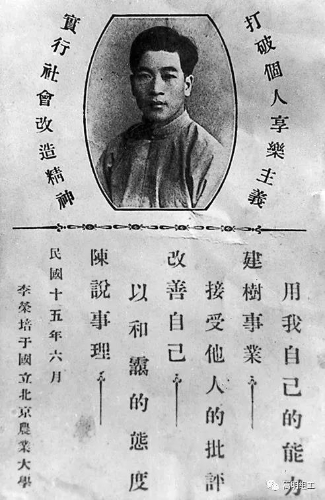 打破個人享樂主義
實行社會改造精神
用我自己的能力
建樹事業
接受他人的批評
改善自己
以和靄的態度
陳說事理
民國十五年六月
李榮培于國立北京農業大學
明电工